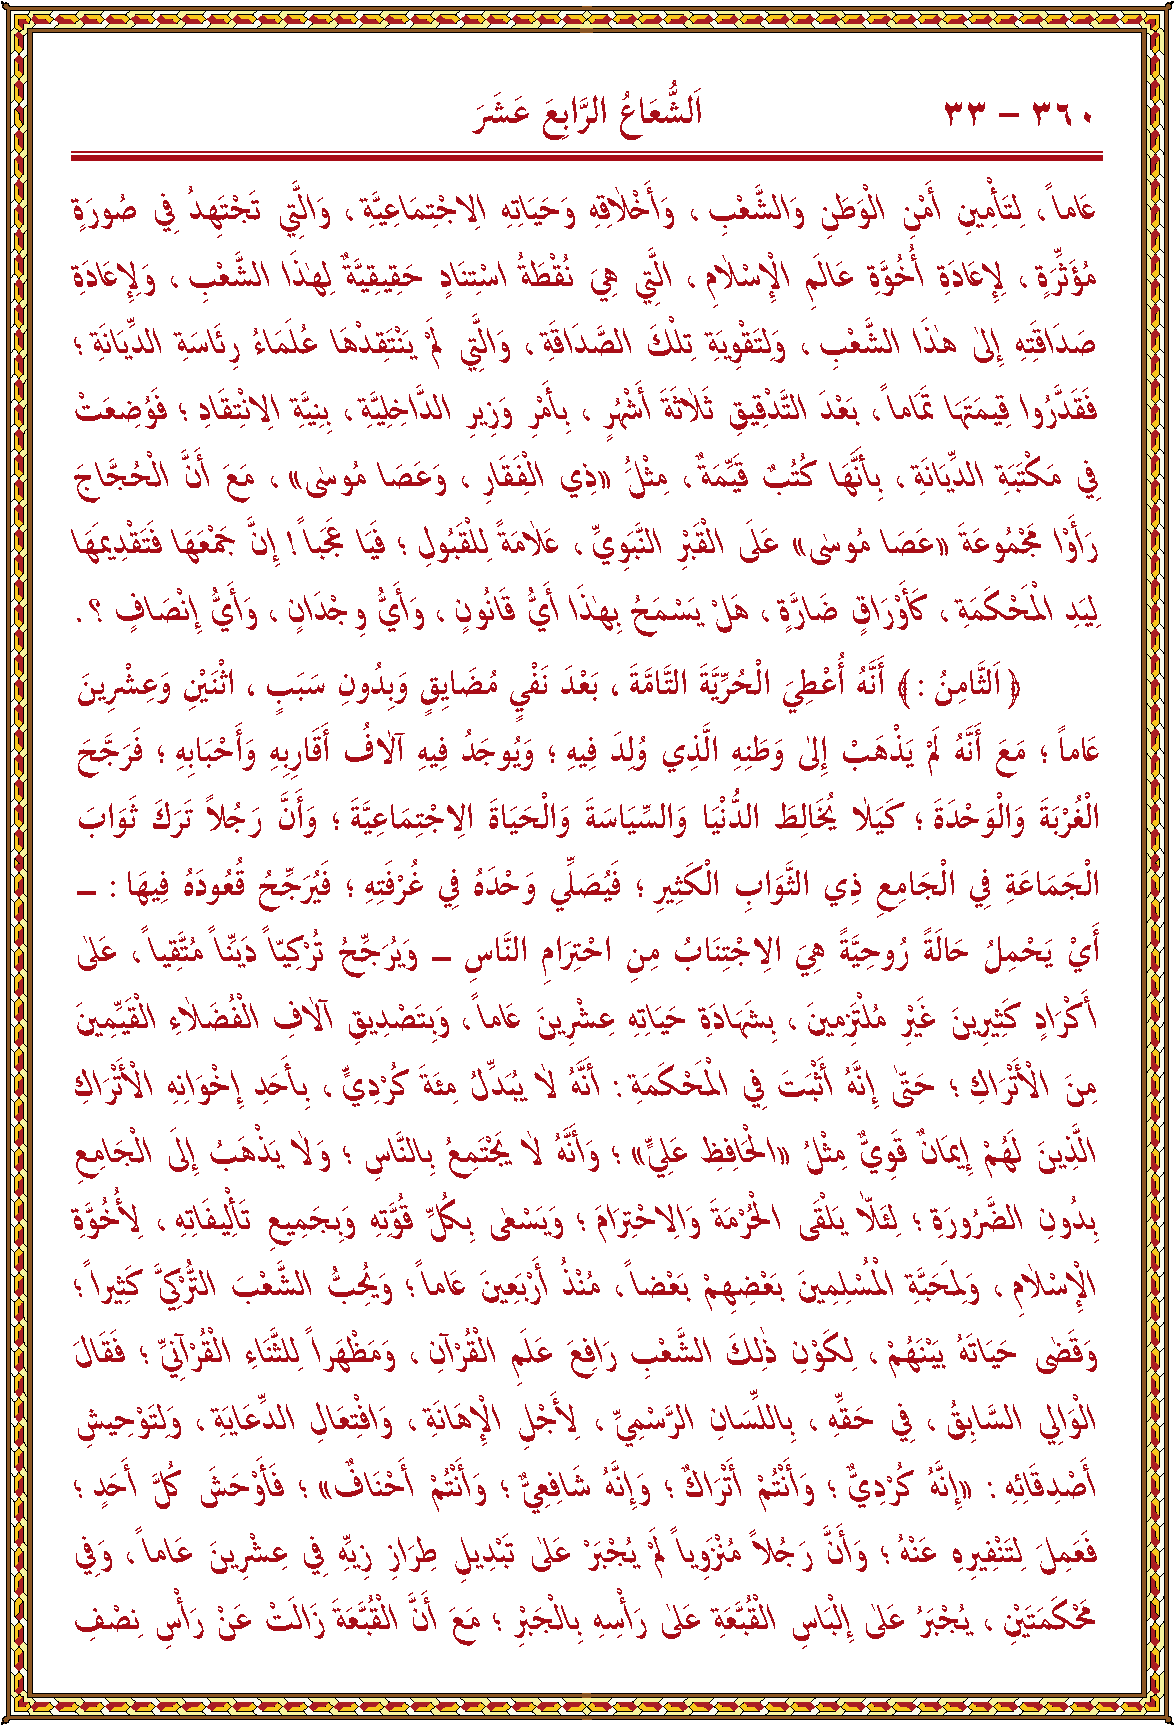 ٣٦٠ – ٣٣ اَلشُّعَاعُ الرَّابِعَ عَشَرَ
عَاماً ، لِتَأْمِينِ أَمْنِ الْوَطَنِ وَالشَّعْبِ ، وَأَخْلَاقِهِ وَحَيَاتِهِ الِاجْتِمَاعِيَّةِ ، وَالَّتِي تَجْتَهِدُ فِي صُورَةٍ
مُؤَثِّرَةٍ ، لِإِعَادَةِ أُخُوَّةِ عَالَمِ الْإِسْلَامِ ، الَّتِي هِيَ نُقْطَةُ اسْتِنَادٍ حَقِيقِيَّةٌ لِهٰذَا الشَّعْبِ ، وَلِإِعَادَةِ
صَدَاقَتِهِ إِلىٰ هٰذَا الشَّعْبِ ، وَلِتَقْوِيَةِ تِلْكَ الصَّدَاقَةِ ، وَالَّتِي لَمْ يَنْتَقِدْهَا عُلَمَاءُ رِئَاسَةِ الدِّيَانَةِ ؛
فَقَدَّرُوا قِيمَتَهَا تَمَاماً ، بَعْدَ التَّدْقِيقِ ثَلَاثَةَ أَشْهُرٍ ، بِأَمْرِ وَزِيرِ الدَّاخِلِيَّةِ ، بِنِيَّةِ الِانْتِقَادِ ؛ فَوُضِعَتْ
فِي مَكْتَبَةِ الدِّيَانَةِ ، بِأَنَّهَا كُتُبٌ قَيِّمَةٌ ، مِثْلُ «ذِي الْفِقَارِ ، وَعَصَا مُوسٰى» ، مَعَ أَنَّ الْحُجَّاجَ
رَأَوْا مَجْمُوعَةَ «عَصَا مُوسٰى» عَلَى الْقَبْرِ النَّبَوِيِّ ، عَلَامَةً لِلْقَبُولِ ؛ فَيَا عَجَباً ! إِنَّ جَمْعَهَا فَتَقْدِيمَهَا
لِيَدِ الْمَحْكَمَةِ ، كَأَوْرَاقٍ ضَارَّةٍ ، هَلْ يَسْمَحُ بِهٰذَا أَيُّ قَانُونٍ ، وَأَيُّ وِجْدَانٍ ، وَأَيُّ إِنْصَافٍ ؟ .
﴿ اَلثَّامِنُ : ﴾ أَنَّهُ أُعْطِيَ الْحُرِّيَّةَ التَّامَّةَ ، بَعْدَ نَفْيٍ مُضَايِقٍ وَبِدُونِ سَبَبٍ ، اثْنَيْنِ وَعِشْرِينَ
عَاماً ؛ مَعَ أَنَّهُ لَمْ يَذْهَبْ إِلىٰ وَطَنِهِ الَّذِي وُلِدَ فِيهِ ؛ وَيُوجَدُ فِيهِ آلَافُ أَقَارِبِهِ وَأَحْبَابِهِ ؛ فَرَجَّحَ
الْغُرْبَةَ وَالْوَحْدَةَ ؛ كَيَلَا يُخَالِطَ الدُّنْيَا وَالسِّيَاسَةَ وَالْحَيَاةَ الِاجْتِمَاعِيَّةَ ؛ وَأَنَّ رَجُلاً تَرَكَ ثَوَابَ
الْجَمَاعَةِ فِي الْجَامِعِ ذِي الثَّوَابِ الْكَثِيرِ ؛ فَيُصَلِّي وَحْدَهُ فِي غُرْفَتِهِ ؛ فَيُرَجِّحُ قُعُودَهُ فِيهَا : –
أَيْ يَحْمِلُ حَالَةً رُوحِيَّةً هِيَ الِاجْتِنَابُ مِنِ احْتِرَامِ النَّاسِ – وَيُرَجِّحُ تُرْكِيّاً دَيِّناً مُتَّقِياً ، عَلىٰ
أَكْرَادٍ كَثِيرِينَ غَيْرِ مُلْتَزِمِينَ ، بِشَهَادَةِ حَيَاتِهِ عِشْرِينَ عَاماً ، وَبِتَصْدِيقِ آلَافِ الْفُضَلَاءِ الْقَيِّمِينَ
مِنَ الْأَتْرَاكِ ؛ حَتّٰى إِنَّهُ أَثْبَتَ فِي الْمَحْكَمَةِ : أَنَّهُ لَا يُبَدِّلُ مِئَةَ كُرْدِيٍّ ، بِأَحَدِ إِخْوَانِهِ الْأَتْرَاكِ
الَّذِينَ لَهُمْ إِيمَانٌ قَوِيٌّ مِثْلُ «الْحَافِظِ عَلِيٍّ» ؛ وَأَنَّهُ لَا يَجْتَمِعُ بِالنَّاسِ ؛ وَلَا يَذْهَبُ إِلَى الْجَامِعِ
بِدُونِ الضَّرُورَةِ ؛ لِئَلَّا يَلْقَى الْحُرْمَةَ وَالِاحْتِرَامَ ؛ وَيَسْعٰى بِكُلِّ قُوَّتِهِ وَبِجَمِيعِ تَأْلِيفَاتِهِ ، لِأُخُوَّةِ
الْإِسْلَامِ ، وَلِمَحَبَّةِ الْمُسْلِمِينَ بَعْضِهِمْ بَعْضاً ، مُنْذُ أَرْبَعِينَ عَاماً ؛ وَيُحِبُّ الشَّعْبَ التُّرْكِيَّ كَثِيراً ؛
وَقَضٰى حَيَاتَهُ بَيْنَهُمْ ، لِكَوْنِ ذٰلِكَ الشَّعْبِ رَافِعَ عَلَمِ الْقُرْآنِ ، وَمَظْهَراً لِلثَّنَاءِ الْقُرْآنِيِّ ؛ فَقَالَ
الْوَالِي السَّابِقُ ، فِي حَقِّهِ ، بِاللِّسَانِ الرَّسْمِيِّ ، لِأَجْلِ الْإِهَانَةِ ، وَافْتِعَالِ الدِّعَايَةِ ، وَلِتَوْحِيشِ
أَصْدِقَائِهِ : «إِنَّهُ كُرْدِيٌّ ؛ وَأَنْتُمْ أَتْرَاكٌ ؛ وَإِنَّهُ شَافِعِيٌّ ؛ وَأَنْتُمْ أَحْنَافٌ» ؛ فَأَوْحَشَ كُلَّ أَحَدٍ ؛
فَعَمِلَ لِتَنْفِيرِهِ عَنْهُ ؛ وَأَنَّ رَجُلاً مُنْزَوِياً لَمْ يُجْبَرْ عَلىٰ تَبْدِيلِ طِرَازِ زِيِّهِ فِي عِشْرِينَ عَاماً ، وَفِي
مَحْكَمَتَيْنِ ، يُجْبَرُ عَلىٰ إِلْبَاسِ الْقُبَّعَةِ عَلىٰ رَأْسِهِ بِالْجَبْرِ ؛ مَعَ أَنَّ الْقُبَّعَةَ زَالَتْ عَنْ رَأْسِ نِصْفِ